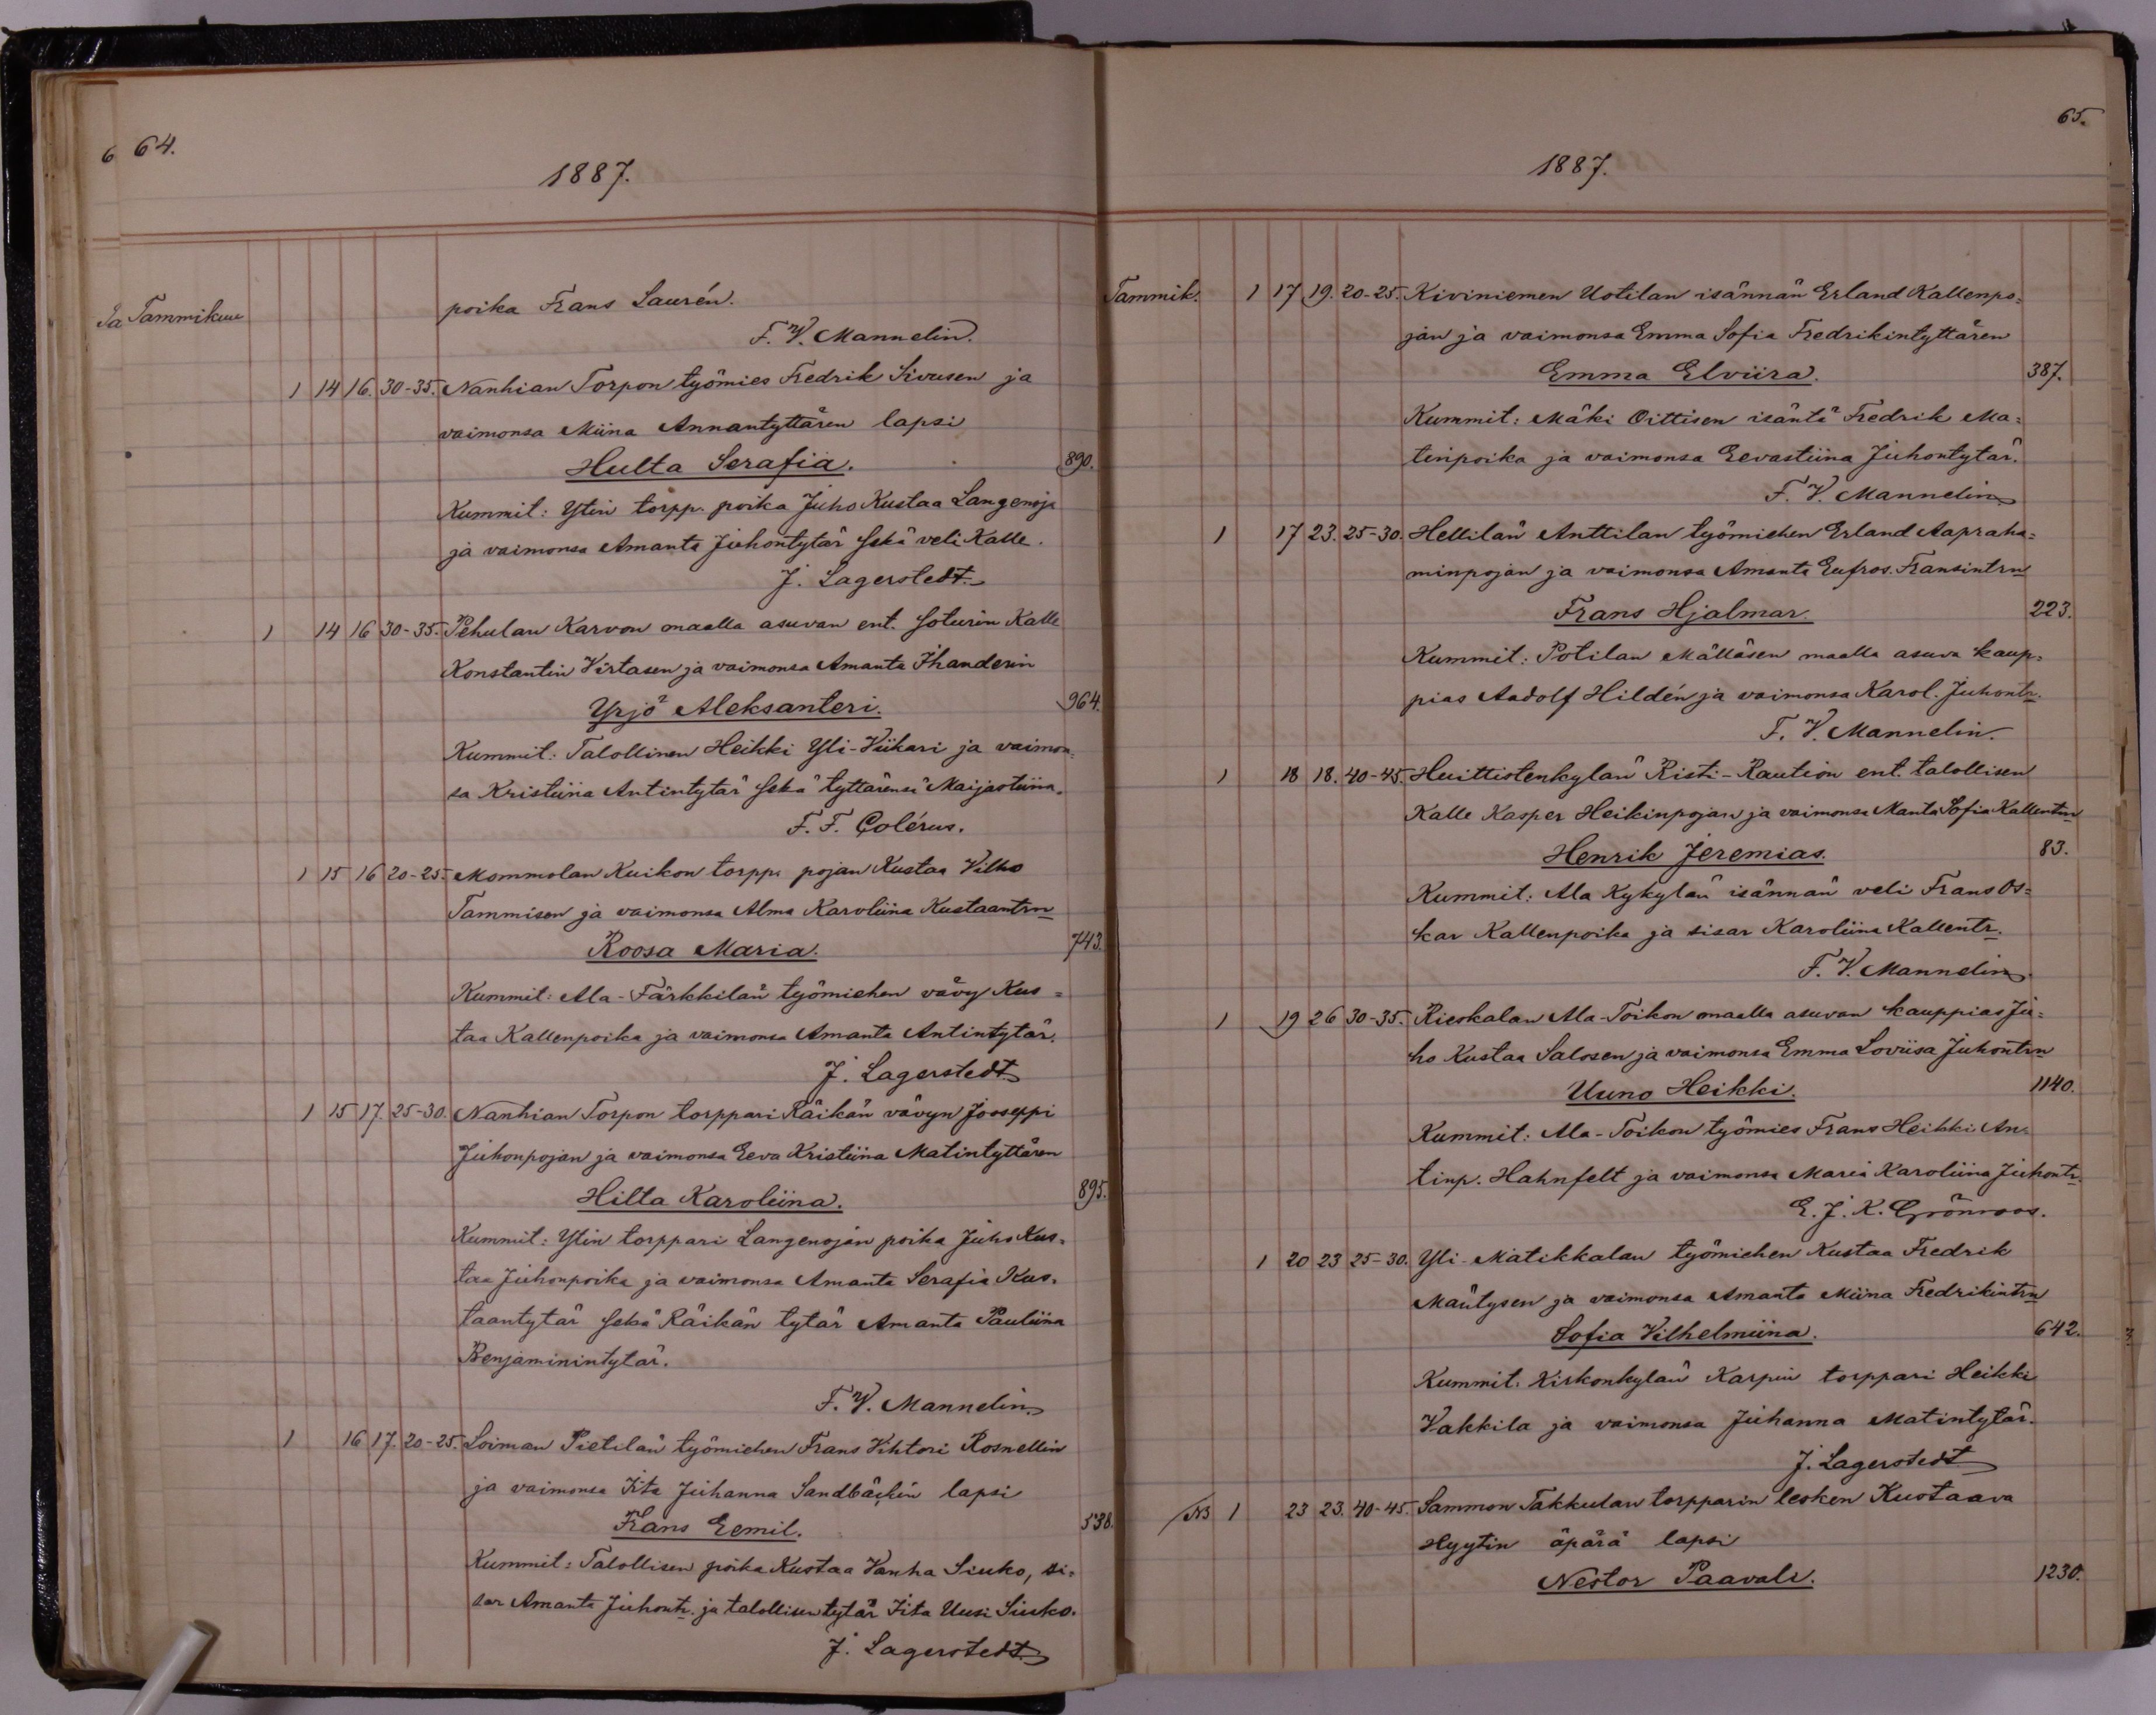 6 64.
1887.
Ja Tammikuu
poika Frans Laurén.
F. V. Mannelin.
1 14 16. 30-35. Nanhian Torpon työmies Fredrik Sivusen ja
vaimonsa Miina Annantyttären lapsi
Hulta Serafia. 890.
Kummit: Ytin torpp. poika Juho Kustaa Langenoja
ja vaimonsa Amanta Juhontytär sekä veli Kalle.
J. Lagerstedt
1 14 16 30-35. Pehulan Karvon maalla asuvan ent. soturin Kalle
Konstantin Virtasen ja vaimonsa Amanta Ihanderin
Yrjö Aleksanteri. 964.
Kummit: Talollinen Heikki Yli-Viikari ja vaimon-
sa Kristiina Antintytär sekä tyttärensä Maijastiina.
F. F. Colérus.
1 15 16 20-25. Mommolan Kuikon torpp. pojan Kustaa Vilho
Tammisen ja vaimonsa Alma Karoliina Kustaantrn
Roosa Maria. 743.
Kummit: Ala-Färkkilän työmiehen vävy Kus=
taa Kallenpoika ja vaimonsa Amanta Antintytär.
J. Lagerstedt
1 15 17. 25-30. Nanhian Torpon torppari Räikän vävyn Jooseppi
Juhonpojan ja vaimonsa Eeva Kristiina Matintyttären
Hilta Karoliina. 895.
Kummit: Ytin torppari Langenojan poika Juho Kus=
taa Juhonpoika ja vaimonsa Amanta Serafia Kus=
taantytär sekä Räikän tytär Amanta Pauliina
Benjaminintytär.
F. V. Mannelin
1 16 17. 20-25. Loiman Pietilän työmiehen Frans Vihtori Rosnellin
ja vaimonsa Iita Juhanna Sandbäckin lapsi
Frans Eemil. 538.
Kummit: Talollisen poika Kustaa Vanha Siuko, si=
sar Amanta Juhontr. ja talollisen tytär Iita Uusi Siuko.
J. Lagerstedt
65.
1887.
Tammik. 1 17 19. 20-25. Kiviniemen Uotilan isännän Erland Kallenpo=
jan ja vaimonsa Emma Sofia Fredrikintyttären
Emma Elviira. 387.
Kummit: Mäki Oittisen isäntä Fredrik Ma=
tinpoika ja vaimonsa Eevastiina Juhontytär.
F. V. Mannelin
1 17 23. 25-30. Hellilän Anttilan työmiehen Erland Aapraha=
minpojan ja vaimonsa Amanta Eufros. Fransintrn
Frans Hjalmar. 223.
Kummit: Potilan Mälläsen maalla asuva kaup=
pias Aadolf Hildén ja vaimonsa Karol. Juhontr.
F. V. Mannelin.
1 18 18. 40-45. Huittistenkylän Risti-Raution ent. talollisen
Kalle Kasper Heikinpojan ja vaimonsa Manta Sofia Kallentrn
Henrik Jeremias. 83.
Kummit: Ala Kykylän isännän veli Frans Os=
kar Kallenpoika ja sisar Karoliina Kallentr.
F. V. Mannelin
1 19 26 30-35. Rieskalan Ala-Toikon maalla asuvan kauppias Ju=
ho Kustaa Salosen ja vaimonsa Emma Loviisa Juhontrn
Uuno Heikki. 1140.
Kummit: Ala-Toikon työmies Frans Heikki An=
tinp. Hahnfelt ja vaimonsa Maria Karoliina Juhontr.
E. J. K. Grönroos.
1 20 23 25-30. Yli-Matikkalan työmiehen Kustaa Fredrik
Mäntysen ja vaimonsa Amanta Miina Fredrikintrn
Sofia Vilhelmiina. 642.
Kummit: Kirkonkylän Karpin torppari Heikki
Vakkila ja vaimonsa Juhanna Matintytär.
J. Lagerstedt
N3 1 23 23. 40-45. Sammon Takkulan torpparin lesken Kustaava
Hyytin äpärä lapsi
Nestor Paavali. 1230.